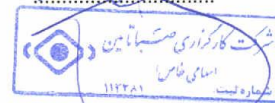 شرکت کارگزاری صبا تامین
(سهامی خاص)
شماره ثبت: ۱۱۷۳۸۱